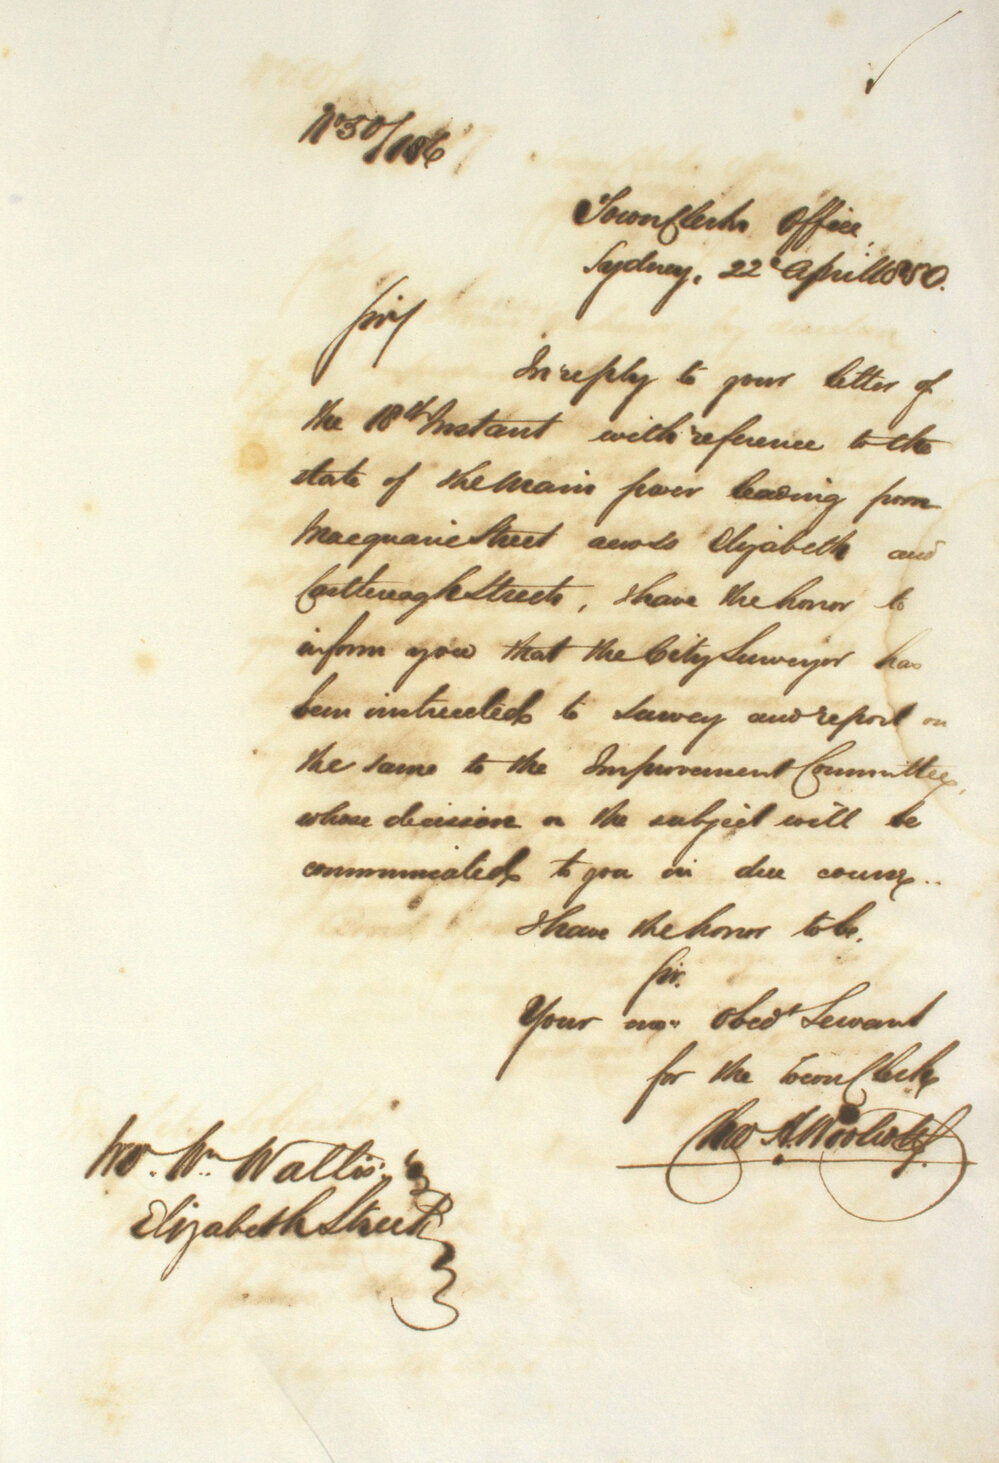 No 50/186
Town Clerks Office
Sydney, 22d April 1850.
Sir
In reply to your letter of
the 18th Instant with reference to the
state of the main sewer leading from
Macquarie Street across Elizabeth and
Castlereagh Streets, I have the honor to
inform you that the City Surveyor has
been instructed to survey and report on
the same to the Improvement Committee,
whose decision on the subject will be
communicated to you in due course.
I have the honor to be.
Sir.
Your mo: Obedt Servant
for the Town Clerk
Wm Wallis
Elizabeth Street